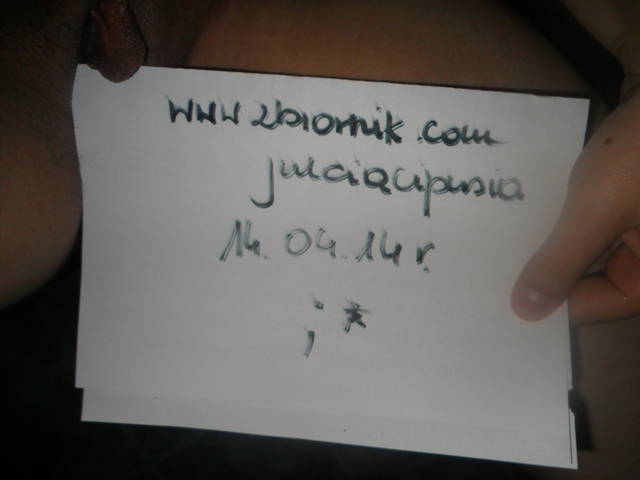 www.zbiornik.com
julciącipusia
14.04.14r.
;*